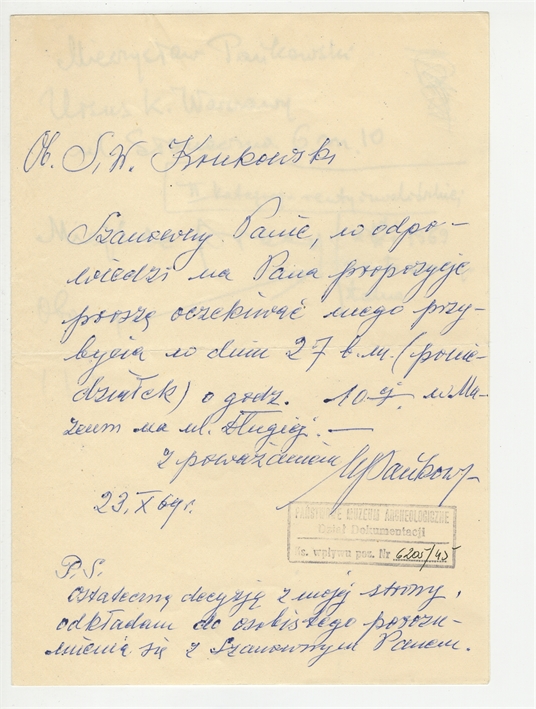 Ob. S.W. Konkowski
Szanowny Panie, w odpo-
wiedzi na Pana propozycję
proszę oczekiwać mego przy-
bycia w dniu 27 b.m. (ponie-
działek) o godz. 10 ej. w Mu-
zeum na ul. Długiej. —
z poważaniem
23. X 69 r.
PAŃSTWOWE MUZEUM ARCHEOLOGICZNE
Dział Dokumentacji
Ks. wpływu poz. Nr 6205/45
P.S.
Ostateczną decyzję z mojej strony,
odkładam do osobistego porozu-
mienia się z Szanownym Panem.